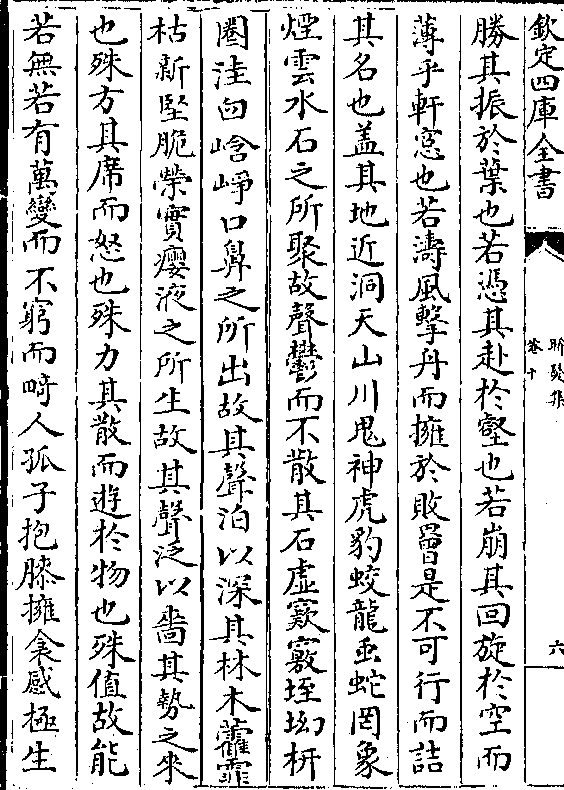 欽定四庫全書
晞髮集
卷十
六
勝其振於葉也若憑其赴於壑也若崩其回旋於空而
薄乎軒窓也若濤風擊舟而擁於敗罾是不可行而詰
其名也盖其地近洞天山川鬼神虎豹蛟龍䖝蛇罔象
煙雲水石之所聚故聲鬱而不散其石虚窾竅垤坳枅
圏洼㕣峆崢口鼻之所出故其聲泊以深其林木藿霏
枯新堅脆榮實癭液之所生故其聲泛以嗇其勢之来
也殊方其席而怒也殊力其散而遊於物也殊值故能
若無若有萬變而不窮而畸人孤子抱膝擁衾感極生